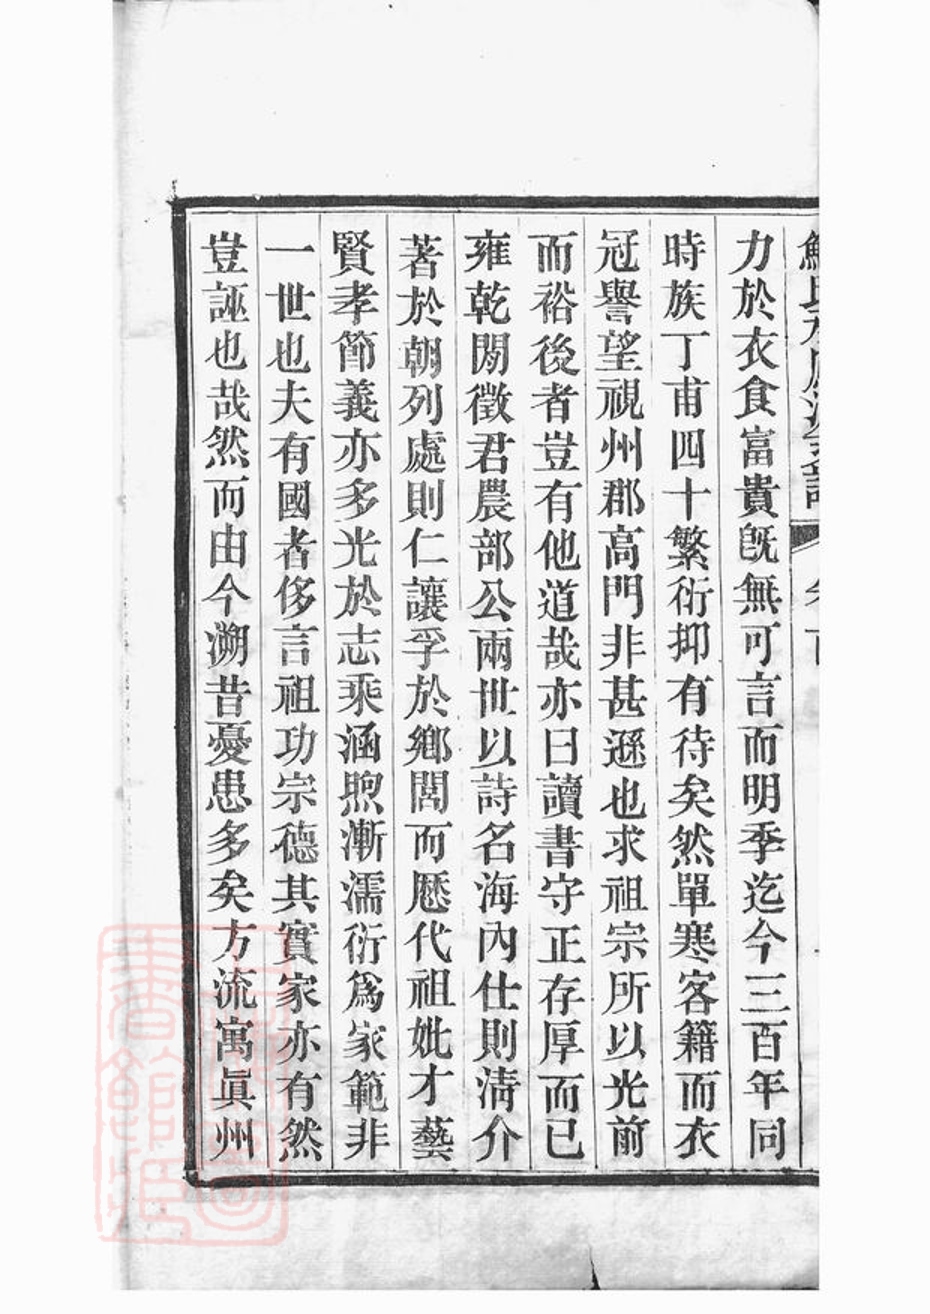 力於衣食富貴旣無可言而明季迄今三百年同
時族丁甫四十繁衍抑有待矣然單寒客籍而衣
冠譽望視州郡高門非甚遜也求祖宗所以光前
而裕後者豈有他道哉亦曰讀書守正存厚而已
雍乾閒徵君農部公兩世以詩名海內仕則淸介
著於朝列處則仁讓孚於鄉閭而歷代祖妣才藝
賢孝節義亦多光於志乘涵煦漸濡衍爲家範非
一世也夫有國者侈言祖功宗德其實家亦有然
豈誣也哉然而由今溯昔憂患多矣方流寓眞州